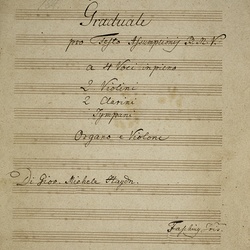 Graduale
pro Festo Assumptionis B.M.V.
a 4 Voci in pieno
2 Violini
2 Clarini
Tympani
Organo e Violone
Di Giov. Michele Haydn.